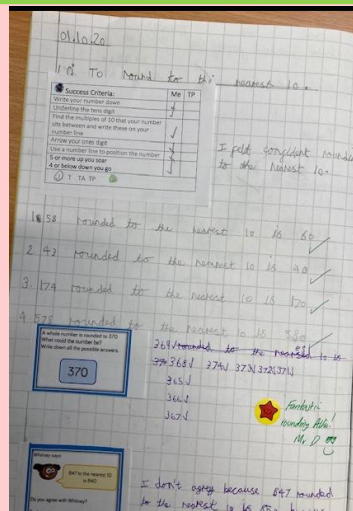 01.10.20
To round to the nearest 10.
Success Criteria: Me TP
Write your number down
Underline the tens digit
Find the multiples of 10 that your number
sits between and write these on your
number line
Arrow your ones digit
Use a number line to position the number
5 or more up you soar
4 or below down you go
I T TA TP
I felt confident
to the nearest 10.
1. 58 rounded to the nearest 10 is 60
2. 43 rounded to the nearest 10 is 40
3. 174 rounded to the nearest 10 is 170
4. 578 rounded to the nearest 10 is 580
A whole number is rounded to 370
What could the number be?
Write down all the possible answers.
370
369 rounded to the nearest 10 is
368 374 373 372 371
365
366
367
Fantastic
rounding
Mr D
Whitney says:
847 to the nearest 10
is 840
Do you agree with Whitney?
I don't agree because 847 rounded
to the nearest 10 is 850